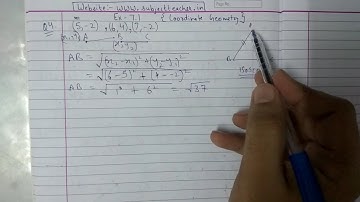 Website:- www.subjectteacher.in
Ex-7.1 {Coordinate Geometry}
Q4 (5,-2), (6,4), (7,-2)
A B C
(x₂,y₂)
AB = √(x₂-x₁)² + (y₂-y₁)²
= √(6-5)² + (4--2)²
AB = √1² + 6² = √37